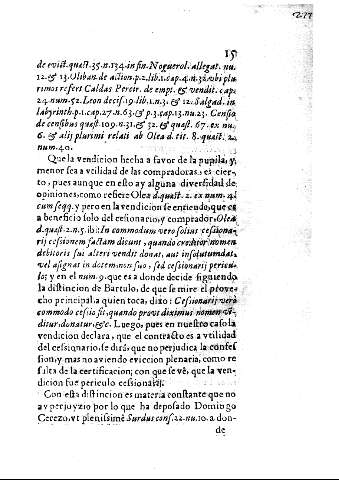 277
15
de evict. quæst. 35. n. 134. in fin. Noguerol. allegat. nu.
12. & 13. Oliban. de action. p. 2. lib. 1. cap. 4. n. 32. ubi plu
rimos refert Caldas Pereir. de empt. & vendit. cap.
24. num. 52. Leon decis. 19. lib. 1. n. 3. & 12. Salgad. in
labyrinth. p. 1. cap. 27. n. 63. & p. 3. cap. 13. nu. 23. Censio
de censibus quæst. 109. n. 31. & 32. & quæst. 67. ex nu.
6. & alij plurimi relati ab Olea d. tit. 8. quæst. 2.
num. 40.
Que la vendicion hecha a favor de la pupila, y
menor sea a vtilidad de las compradoras, es cier-
to, pues aunque en esto ay alguna diversidad de
opiniones, como refiere Olea d. quæst. 2. ex num. 4.
cum seqq. y pero en la vendicion se entiende, que ce
a beneficio solo del cesionario, y comprador, Olea
d. quæst. 2. n. 5. ib: In commodum vero solius cessiona-
rij cessionem factam dicunt, quando creditor nomen
debitoris sui alteri vendit donat, aut insolutum dat,
vel assignat in dotem, non suo, sed cessionarij pericu-
lo; y en el num. 9. que es a donde decide siguiendo
la distincion de Bartulo, de que se mire el prove-
cho principal a quien toca, dixo: Cessionarij verò
commodo cessio fit, quando prout diximus nomen vē-
ditur, donatur, &c. Luego, pues en nuestro caso la
vendicion declara, que el contracto es a vtilidad
del cesionario, se dirà, que no perjudica la confes-
sion, y mas no aviendo eviccion plenaria, como re
sulta de la certificacion; con que se vè, que la ven-
dicion fue periculo cessionarij.
Con esta distincion es materia constante que no
ay perjuyzio por lo que ha deposado Domingo
Cerezo, vt plenissimè Surdus cons. 22. nu. 10. a don-
de